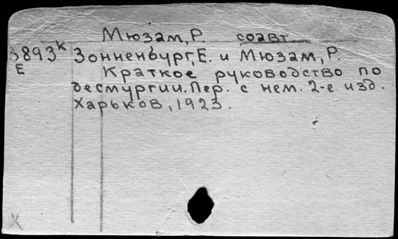 Мюзам, Р. соавт.
3893к Зонненбург, Е. и Мюзам, Р.
Е Краткое руководство по
десмургии. Пер. с нем. 2-е изд.
Харьков, 1923.
X